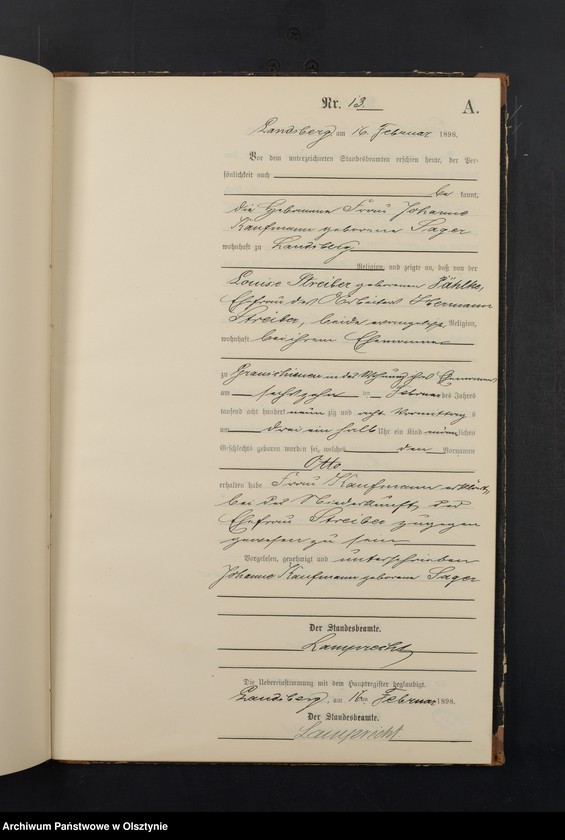 Nr. 13
A.
Landsberg am 16. Februar 1898.
Vor dem unterzeichneten Standesbeamten erschien heute, der Per-
sönlichkeit nach
be kannt,
die Hebamme Frau Johanne
Kaufmann geborene Sager
wohnhaft zu Landsberg
Religion, und zeigte an, daß von der
Louise Streiber geborenen Pählke,
Ehefrau des Arbeiters Hermann
Streiber, beide evangelisch Religion,
wohnhaft bei ihrem Ehemanne
zu Grauschienen in der Wohnung ihres Ehemannes
am sechszehn ten Februar des Jahres
tausend acht hundert neun zig und acht Vormittag s
um drei ein halb Uhr ein Kind männlichen
Geschlechts geboren worden sei, welches den Vornamen
Otto
erhalten habe. Frau Kaufmann erklärt,
bei der Niederkunft der
Ehefrau Streiber zugegen
gewesen zu sein
Vorgelesen, genehmigt und unterschrieben
Johanne Kaufmann geborene Sager
Der Standesbeamte.
Lamprecht
Die Uebereinstimmung mit dem Hauptregister beglaubigt.
Landsberg, am 16ten Februar 1898.
Der Standesbeamte.
Lamprecht
Archiwum Państwowe w Olsztynie